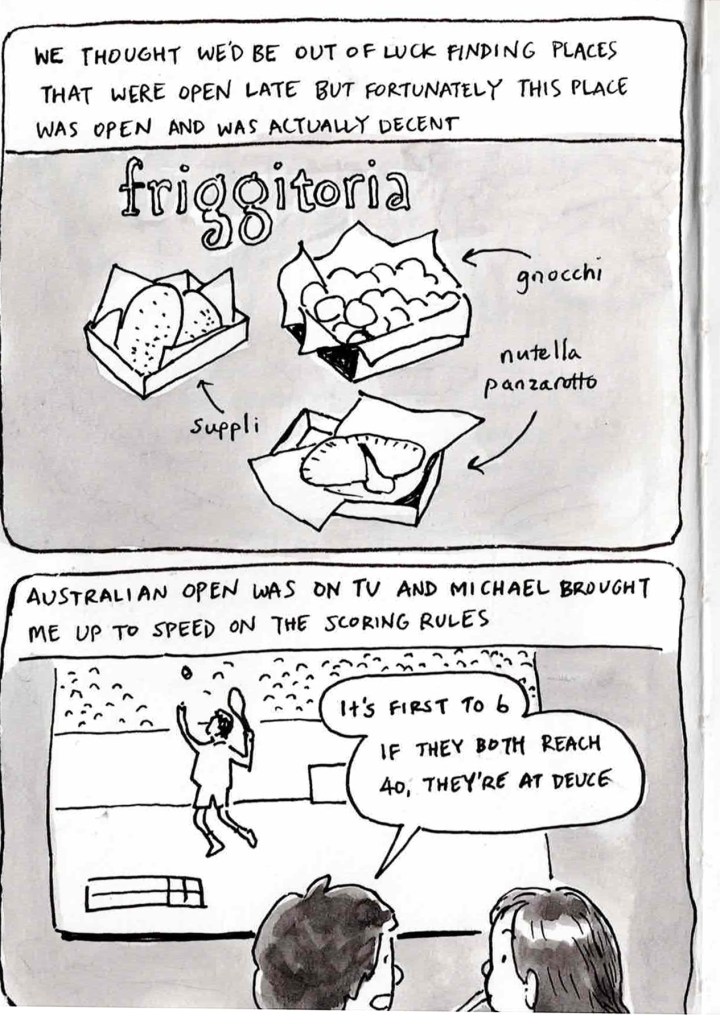 WE THOUGHT WE'D BE OUT OF LUCK FINDING PLACES
THAT WERE OPEN LATE BUT FORTUNATELY THIS PLACE
WAS OPEN AND WAS ACTUALLY DECENT
friggitoria
gnocchi
nutella
panzarotto
suppli
AUSTRALIAN OPEN WAS ON TV AND MICHAEL BROUGHT
ME UP TO SPEED ON THE SCORING RULES
It's FIRST TO 6
IF THEY BOTH REACH
40, THEY'RE AT DEUCE